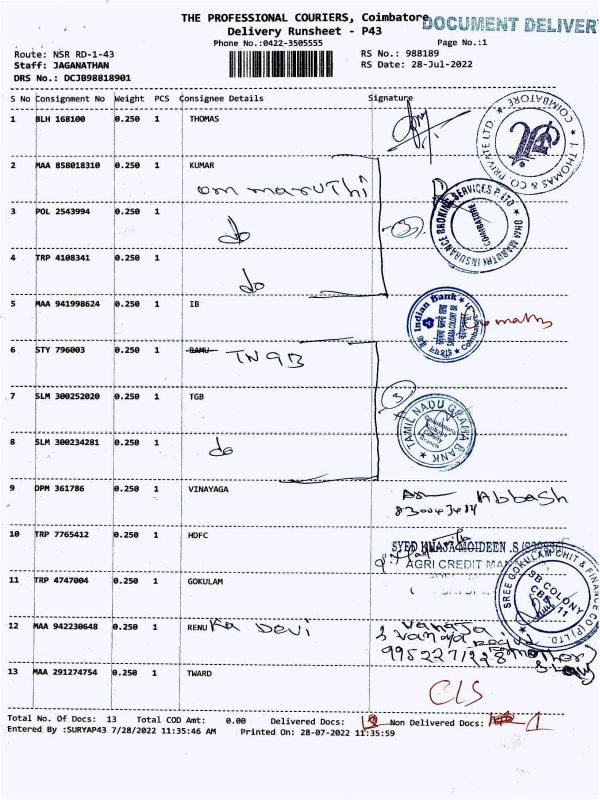 THE PROFESSIONAL COURIERS, Coimbatore
DOCUMENT DELIVERY
Delivery Runsheet - P43
Phone No.:0422-3505555
Page No.:1
Route: NSR RD-1-43
RS No.: 988189
Staff: JAGANATHAN
RS Date: 28-Jul-2022
DRS No.: DCJB98818901
S No Consignment No Weight PCS Consignee Details Signature
1 BLH 168100 0.250 1 THOMAS
J. THOMAS & CO. PRIVATE LTD. COIMBATORE
2 MAA 858018310 0.250 1 KUMAR
om maruthi
3 POL 2543994 0.250 1
do
OHM MARUTHI INSURANCE BROKING SERVICES P LTD COIMBATORE
4 TRP 4108341 0.250 1
do
5 MAA 941998624 0.250 1 IB
Indian Bank
6 STY 796003 0.250 1 RAMU TNGB
7 SLM 300252020 0.250 1 TGB
3
TAMIL NADU GRAMA BANK
8 SLM 300234281 0.250 1
do
9 DPM 361786 0.250 1 VINAYAGA
Abbash
10 TRP 7765412 0.250 1 HDFC
SYED KHAJA MOIDEEN .S
AGRI CREDIT
11 TRP 4747004 0.250 1 GOKULAM
SREE GOKULAM CHIT & FINANCE CO (P) LTD. SB COLONY CBE 11
12 MAA 942230648 0.250 1 RENU Ka Devi
Vanaja
9952271228
13 MAA 291274754 0.250 1 TWARD
CLS
Total No. Of Docs: 13 Total COD Amt: 0.00 Delivered Docs: Non Delivered Docs: 1
Entered By :SURYAP43 7/28/2022 11:35:46 AM Printed On: 28-07-2022 11:35:59